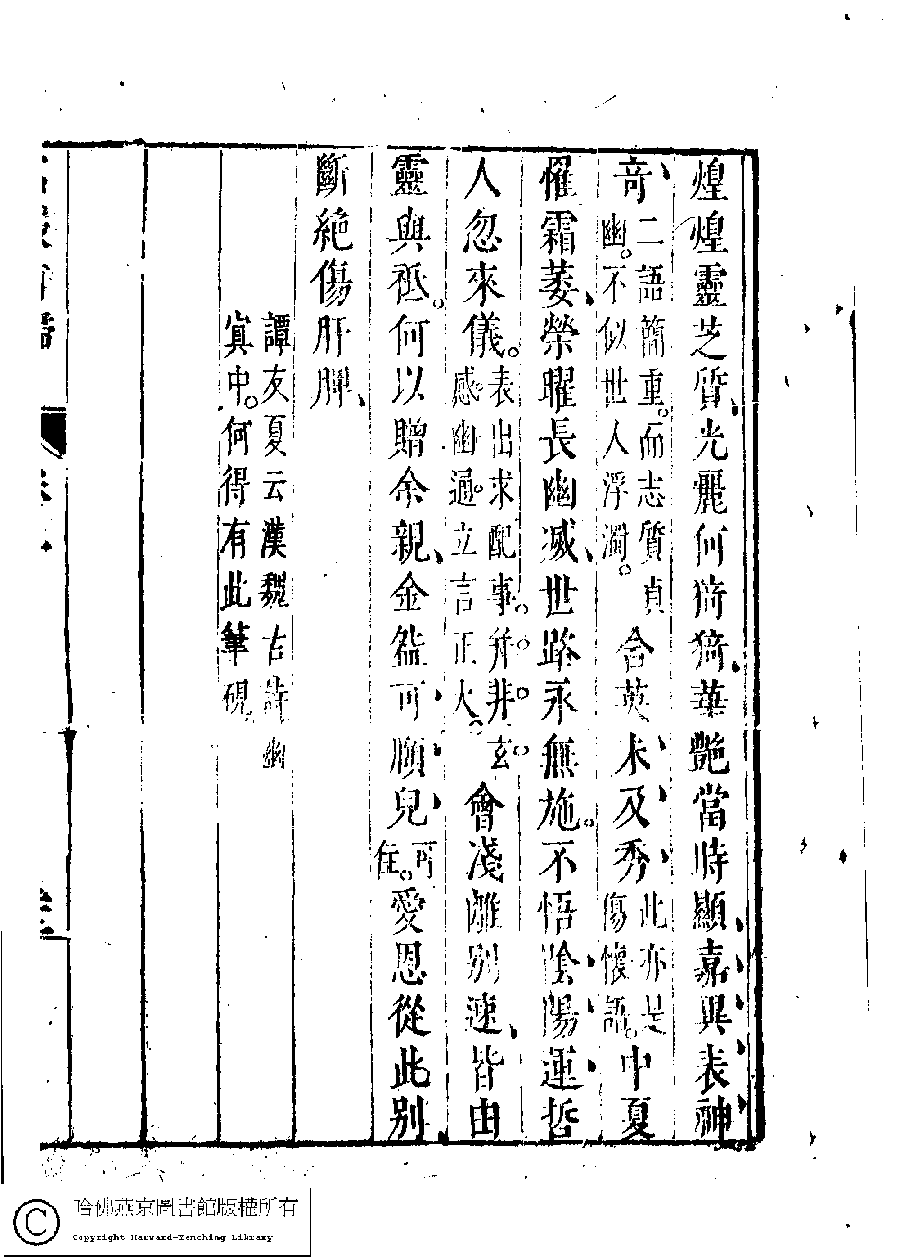 煌煌靈芝質、光麗何猗猗、華艷當時顯、嘉異表神
奇、二語簡重。而志質貞
幽。不似世人浮濁。
含英未及秀、此亦是
傷懷語。
中夏
罹霜萎、榮曜長幽滅、世路永無施。不悟陰陽運哲
人忽來儀。表出求配事。并非玄
感幽通。立言正大。
會淺離別速、皆由
靈與祇。何以贈余親、金瓫可頤兒、可
住。
愛恩從此別
斷絕傷肝脾、
譚友夏云漢魏古詩幽
寘中。何得有此筆硯。
哈佛燕京圖書館版權所有
Copyright Harvard-Yenching Library